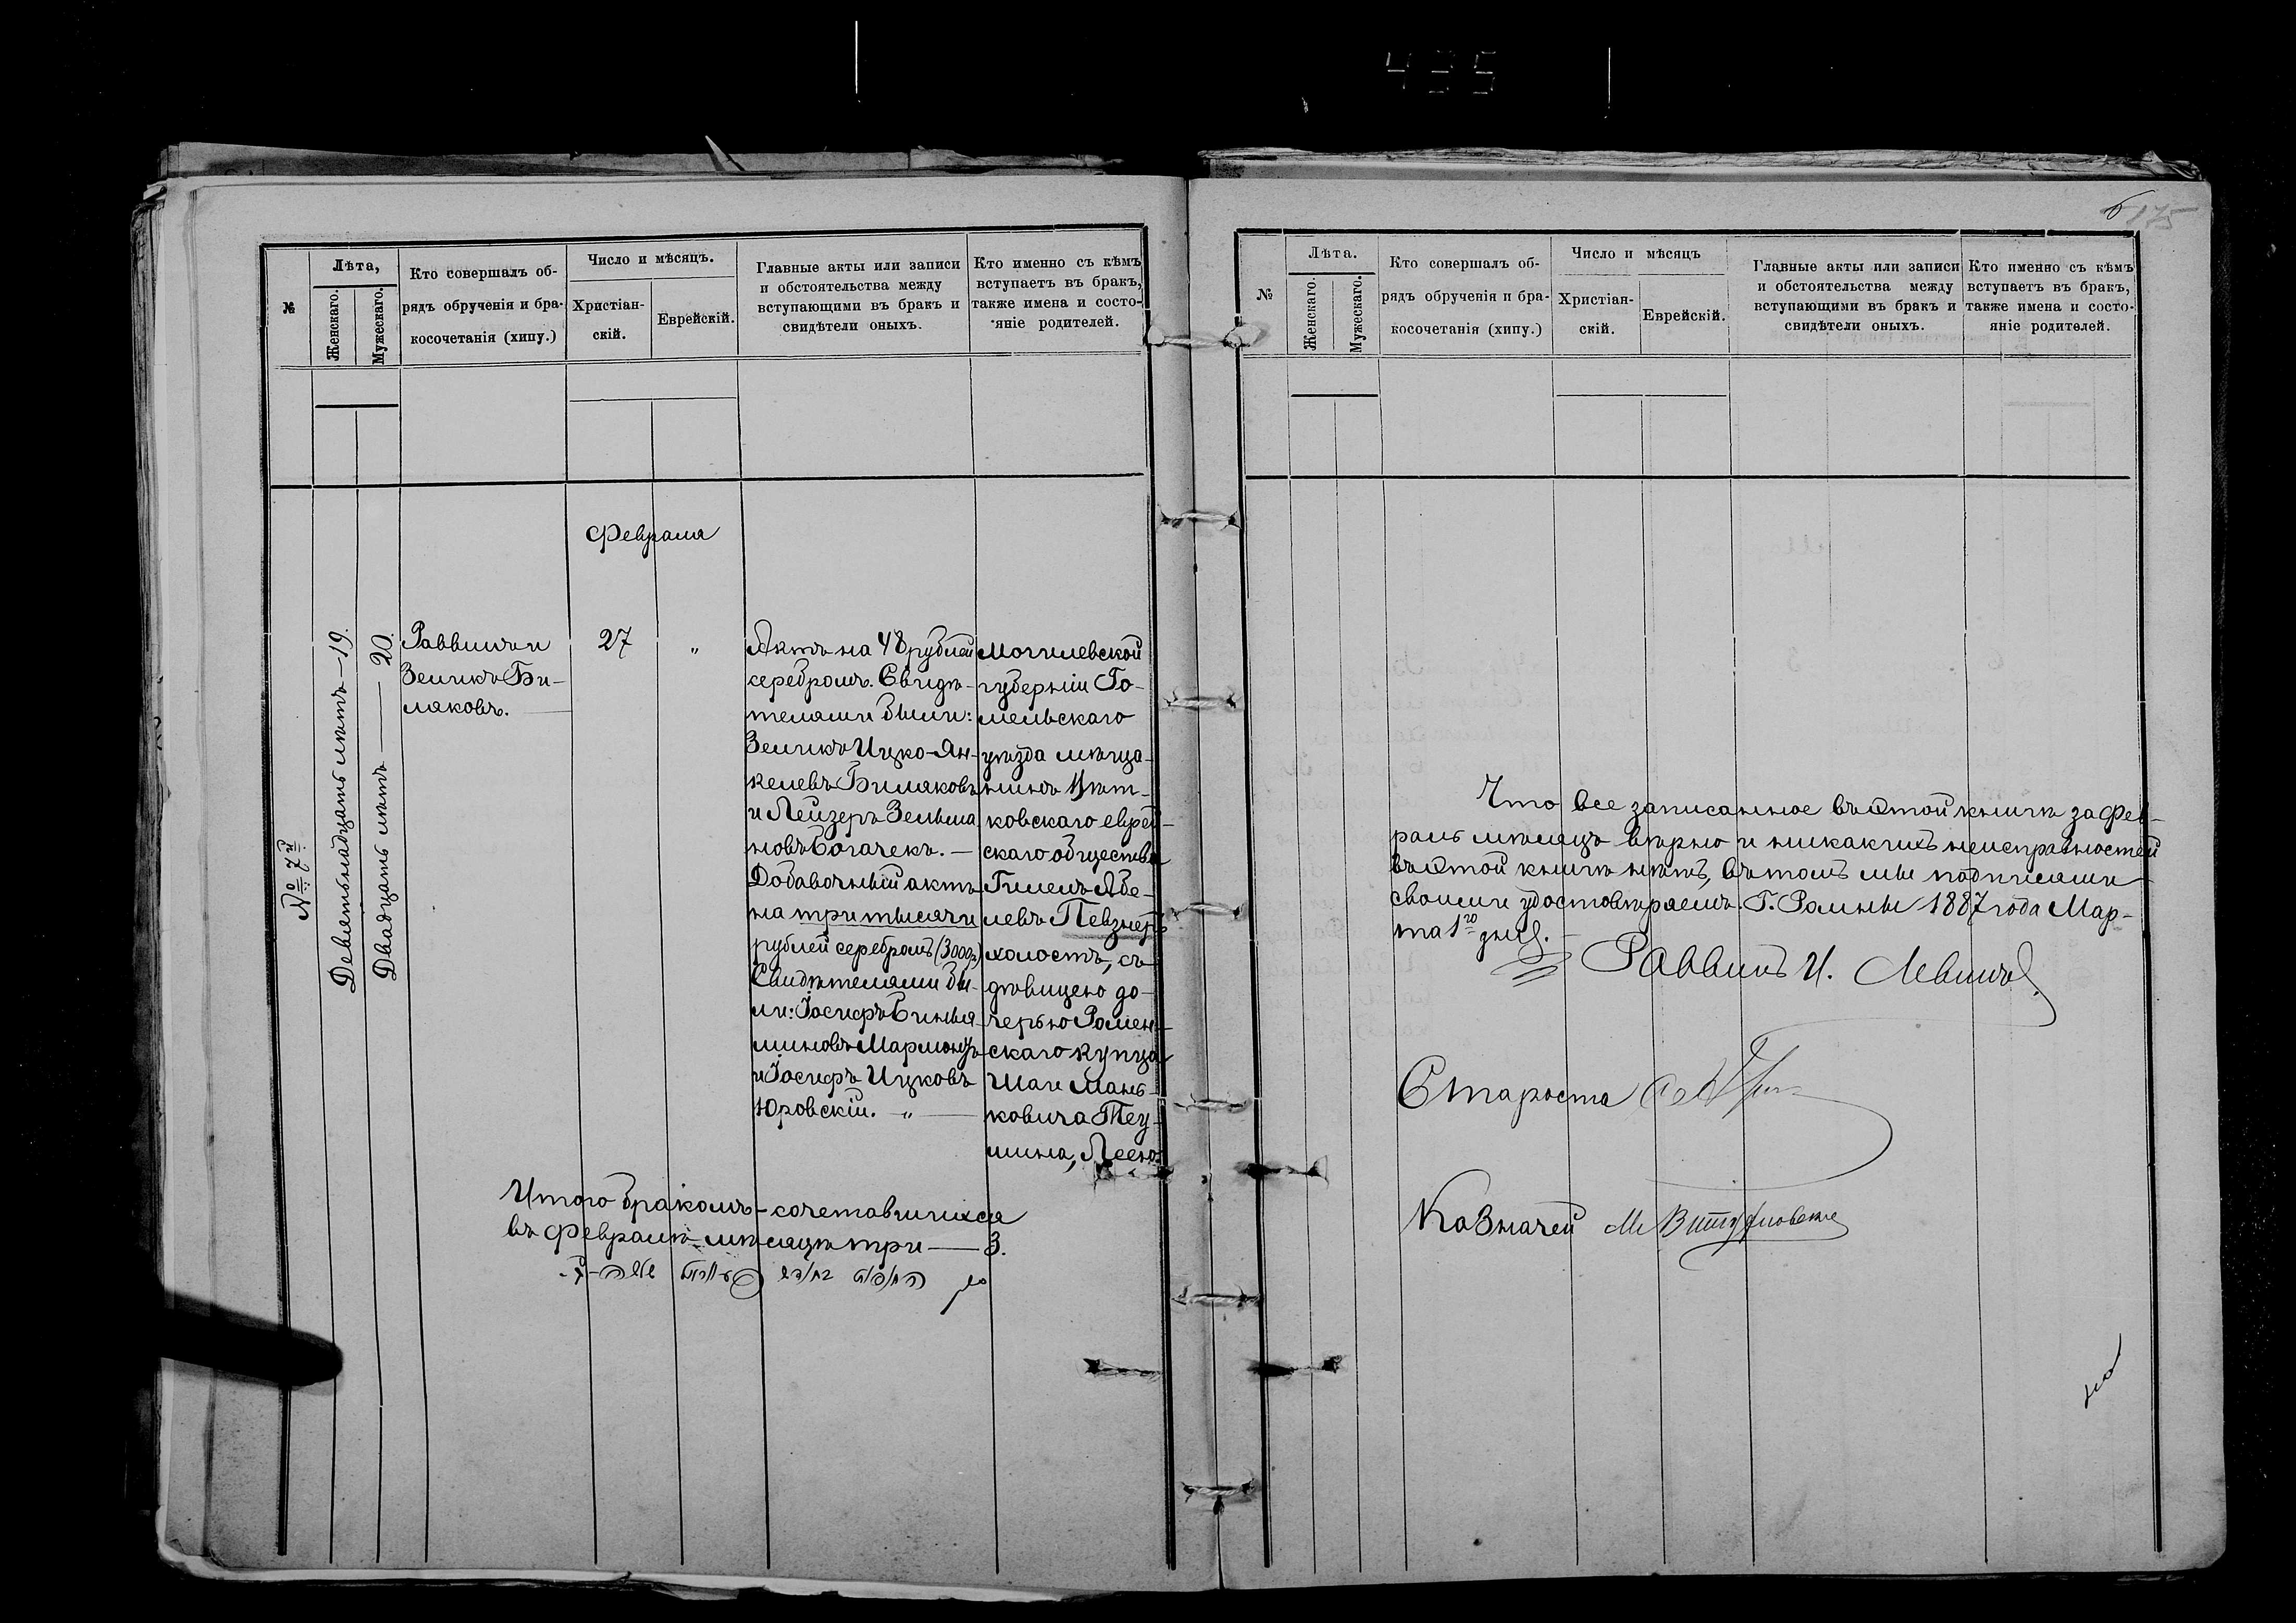 435
6 175
№
Лѣта,
Женскаго.
Мужескаго.
Кто совершалъ об-
рядъ обрученія и бра-
косочетанія (хипу.)
Число и мѣсяцъ.
Христіан-
скій.
Еврейскій.
Главные акты или записи
и обстоятельства между
вступающими въ бракъ и
свидѣтели оныхъ.
Кто именно съ кѣмъ
вступаетъ въ бракъ,
также имена и состо-
яніе родителей.
Февраля
№ 7й
Девятьнадцать лѣтъ — 19.
Двадцать лѣтъ — 20.
Раввинъ и
Зеликъ Би-
ляковъ.
27
"
Актъ на 48 рублей
серебромъ. Свидѣ-
телями были:
Зеликъ Ицко-Ян-
келевъ Биляковъ
и Лейзеръ Зельма
новъ Богачекъ. —
Добавочный актъ
на три тысячи
рублей серебромъ (3000р)
Свидѣтелями бы-
ли: Іосифъ Бинья-
миновъ
и Іосифъ Ицковъ
Юровскій. "
Могилевской
губерніи Го-
мельскаго
уѣзда мѣща-
нинъ Вѣт-
ковскаго еврей-
скаго общества
Гилель Абе-
левъ Певзнеръ
холостъ, съ
дѣвицею до-
черью Ромен-
скаго купца
Шаи Мань-
ковича Теу-
мина, Леею.
Итого бракомъ-сочетавшихся
въ февралѣ мѣсяцѣ три — 3.
№
Лѣта.
Женскаго.
Мужескаго.
Кто совершалъ об-
рядъ обрученія и бра-
косочетанія (хипу.)
Число и мѣсяцъ
Христіан-
скій.
Еврейскій.
Главные акты или записи
и обстоятельства между
вступающими въ бракъ и
свидѣтели оныхъ.
Кто именно съ кѣмъ
вступаетъ въ бракъ,
также имена и состо-
яніе родителей.
Что все записанное въ этой книгѣ за фев-
раль мѣсяцъ вѣрно и никакихъ неисправностей
въ этой книгѣ нѣтъ, въ томъ мы подписями
своими удостовѣряемъ. Г. Ромны 1887 года Мар-
та 1го дня.
Раввинъ И. Левинъ
Староста
Казначей М